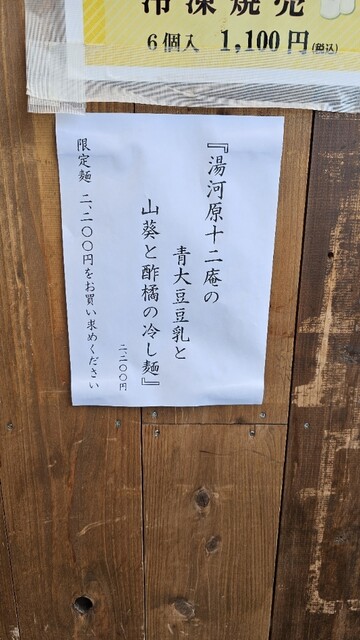 冷凍焼売
6個入 1,100円(税込)
『湯河原十二庵の
青大豆豆乳と
山葵と酢橘の冷し麺』
二、二〇〇円
限定麺 二、二〇〇円をお買い求めください